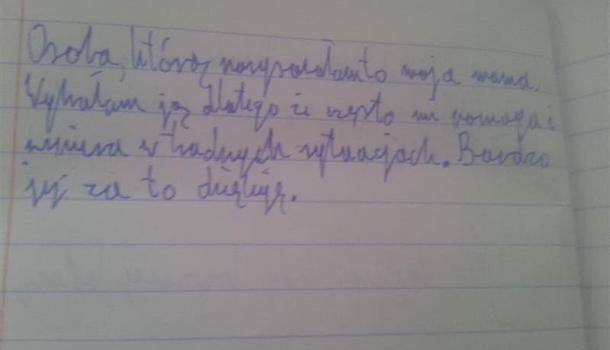 Osoba, którą narysowałam to moja mama.
Wybrałam ją dlatego że często mi pomaga i
wspiera w trudnych sytuacjach. Bardzo
jej za to dziękuję.